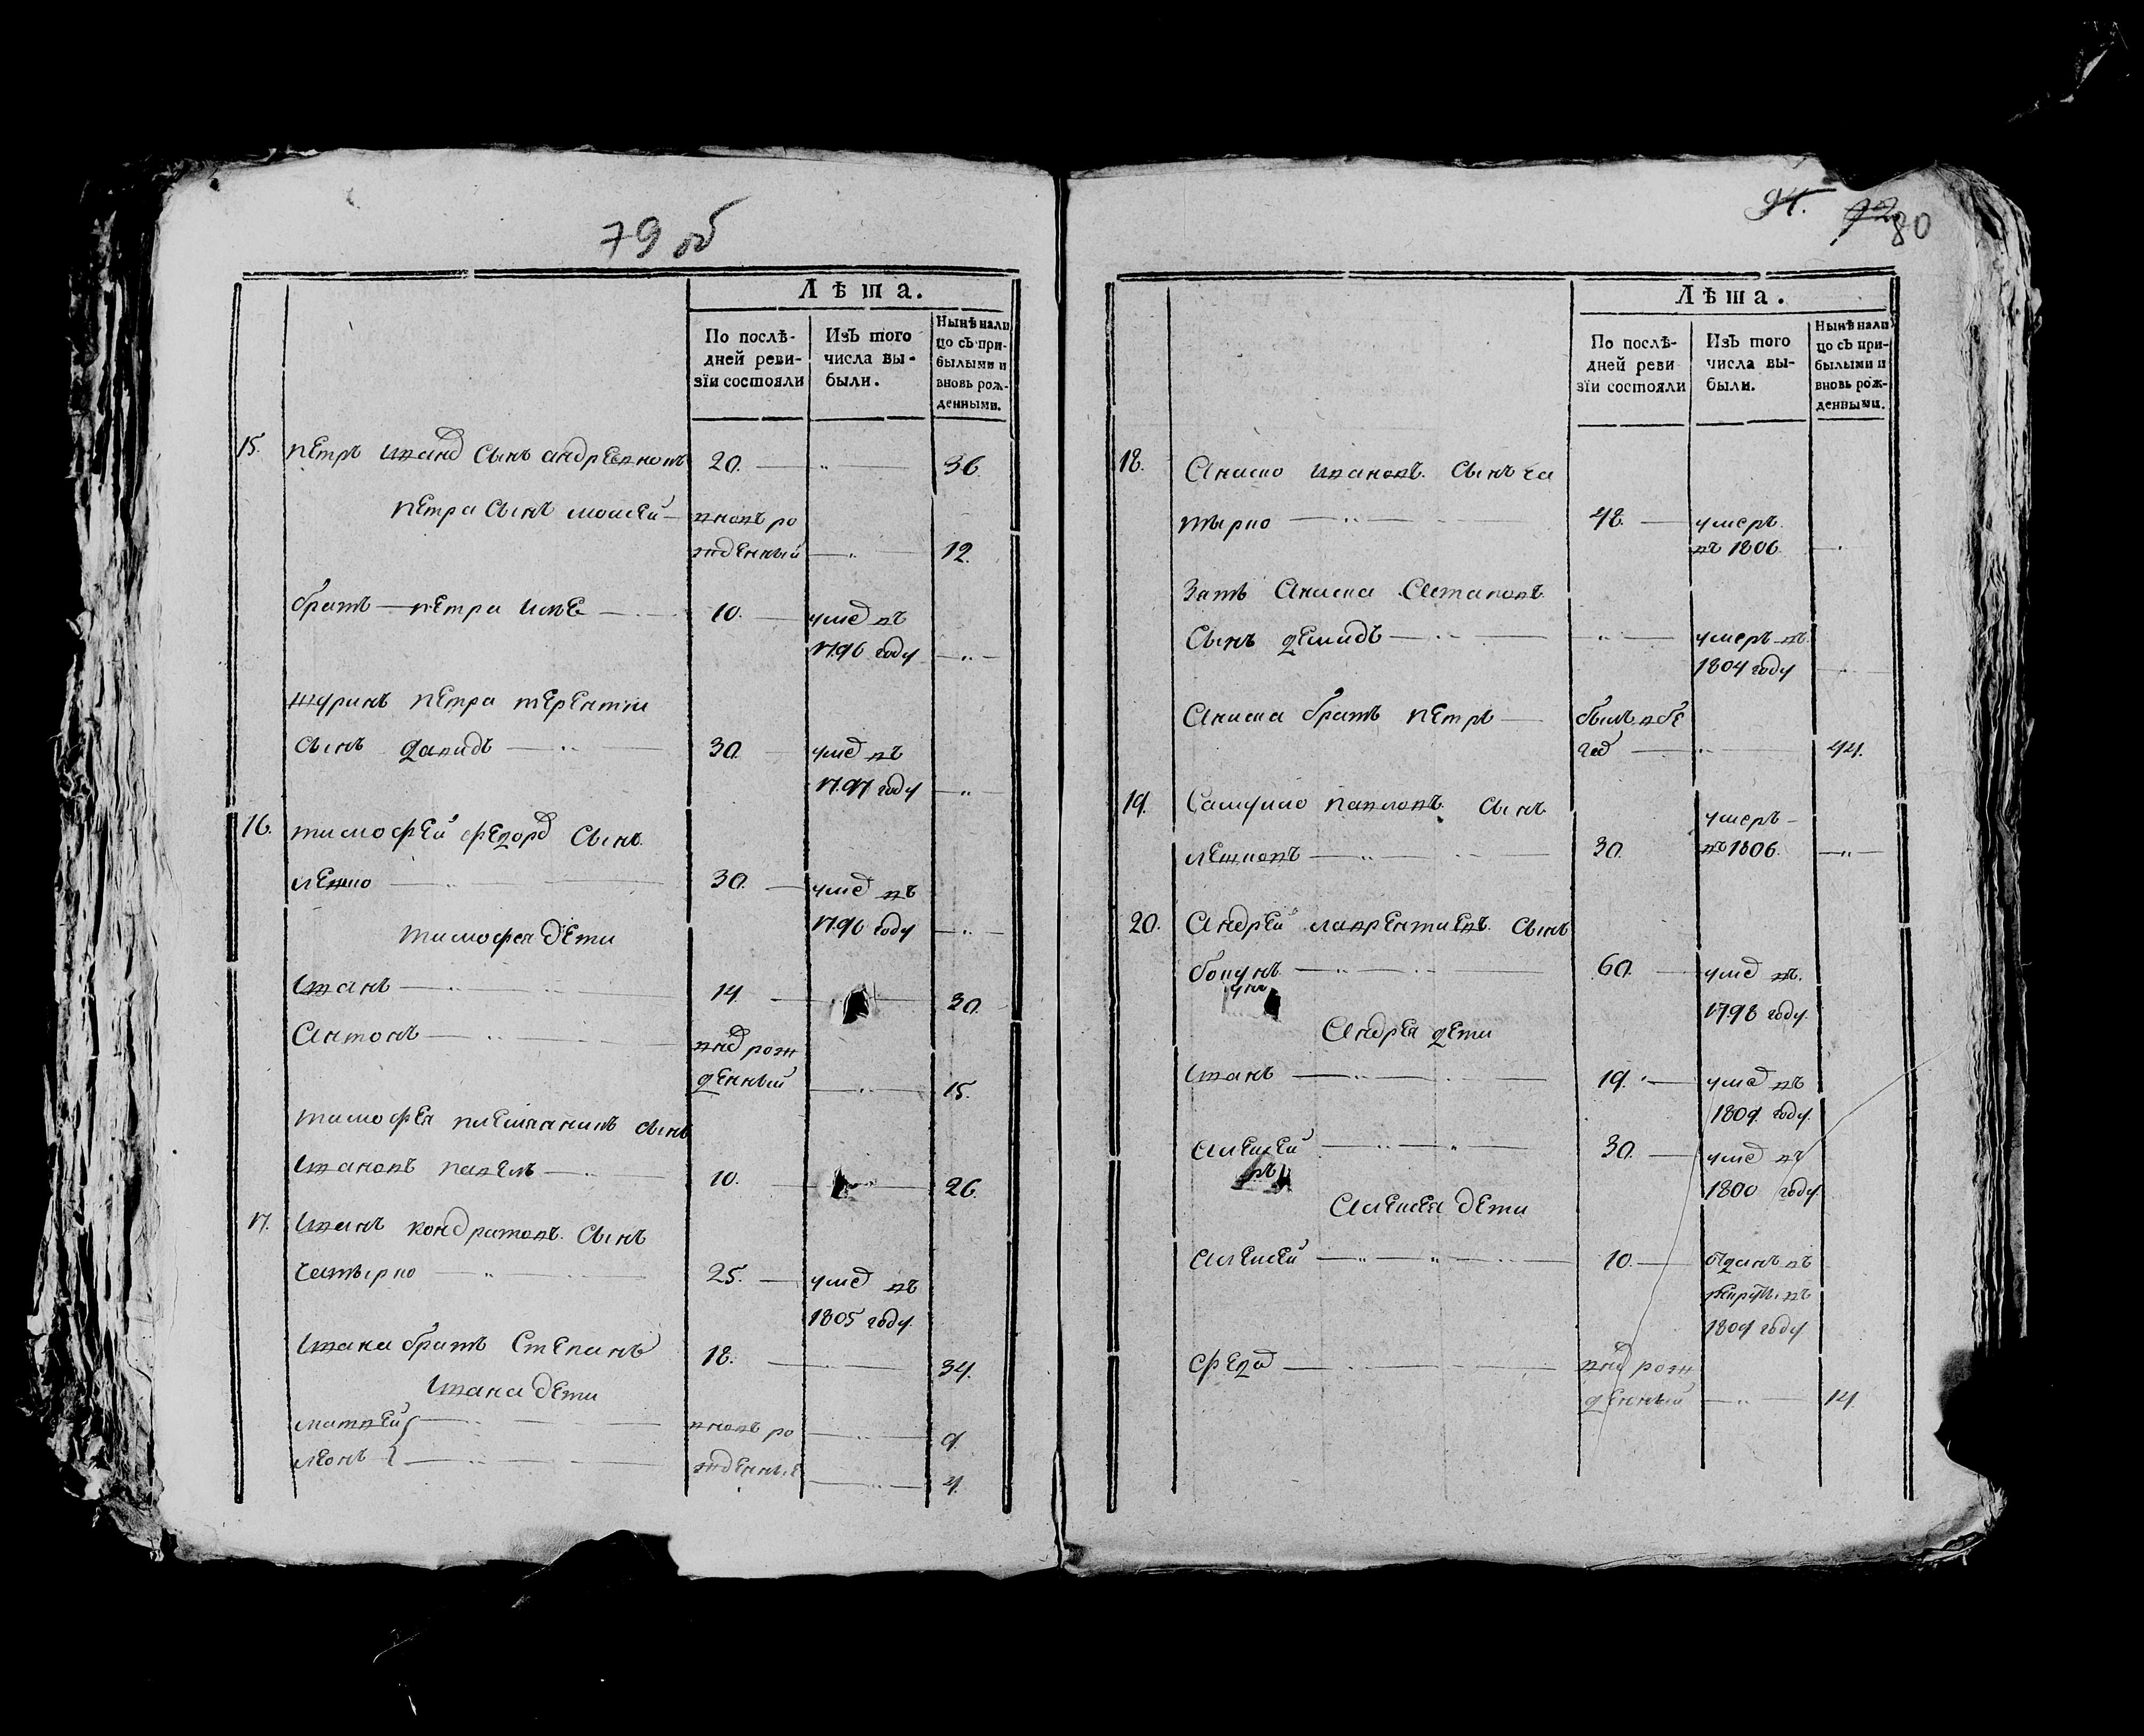 79 об
Лѣта.
По послѣ-
дней реви-
зїи состояли
Изъ того
числа вы-
были.
Нынѣ нали
цо съ при-
былыми и
вновь рож-
денными.
15. петръ иванов сынъ андреевновъ 20. — „ — 36.
петра сынъ моисей — вновь ро
жденный — „ — 12.
братъ — петра — 10. — умер въ
1796 году — „ —
шуринъ петра терентiи
сынъ давидъ — „ — 30. умер въ
1797 году — „ —
16. тимофей федоров сынъ
— „ — 30. — умер въ
1796 году — „ —
тимофея дети
иванъ — „ — 14 — 30.
антонъ — „ — внов рож
денный — „ — 15.
тимофея племянникъ сынъ
ивановъ павелъ — „ — 10. — 26.
17. иванъ кондратовъ сынъ
чатырко — „ — 25. — умер въ
1805 году.
ивана братъ степанъ 18. — „ — 34.
ивана дети
матвей — „ — вновь ро — „ — 9.
леонъ — „ — жденные — „ — 4.
94. 80
Лѣта.
По послѣ-
дней реви
зїи состояли
Изъ того
числа вы-
были.
Нынѣ нали
цо съ при-
былыми и
вновь рож-
денными.
18. Анисио ивановъ сынъ ча
тырко — „ — 48. — умеръ
въ 1806. —
зять аниска астаповъ
сынъ демидъ — „ — „ — умеръ въ
1804 году —
аниска братъ петръ — былъ в бе
гах — „ — 44.
19. Самуило павловъ сынъ
— „ — 30. умеръ —
въ 1806. — „ —
20. андрей лаврентиевъ сынъ
— „ — 60. — умер въ
1798 году.
андрея дети
иванъ — „ — 19. — умер въ
1809 году.
алексей — „ — 30. — умер въ
1800 году.
алексея дети
алексей — „ — 10. — отданъ въ
рекруты въ
1809 году
федор — „ — внов рож
денный — „ — 14.